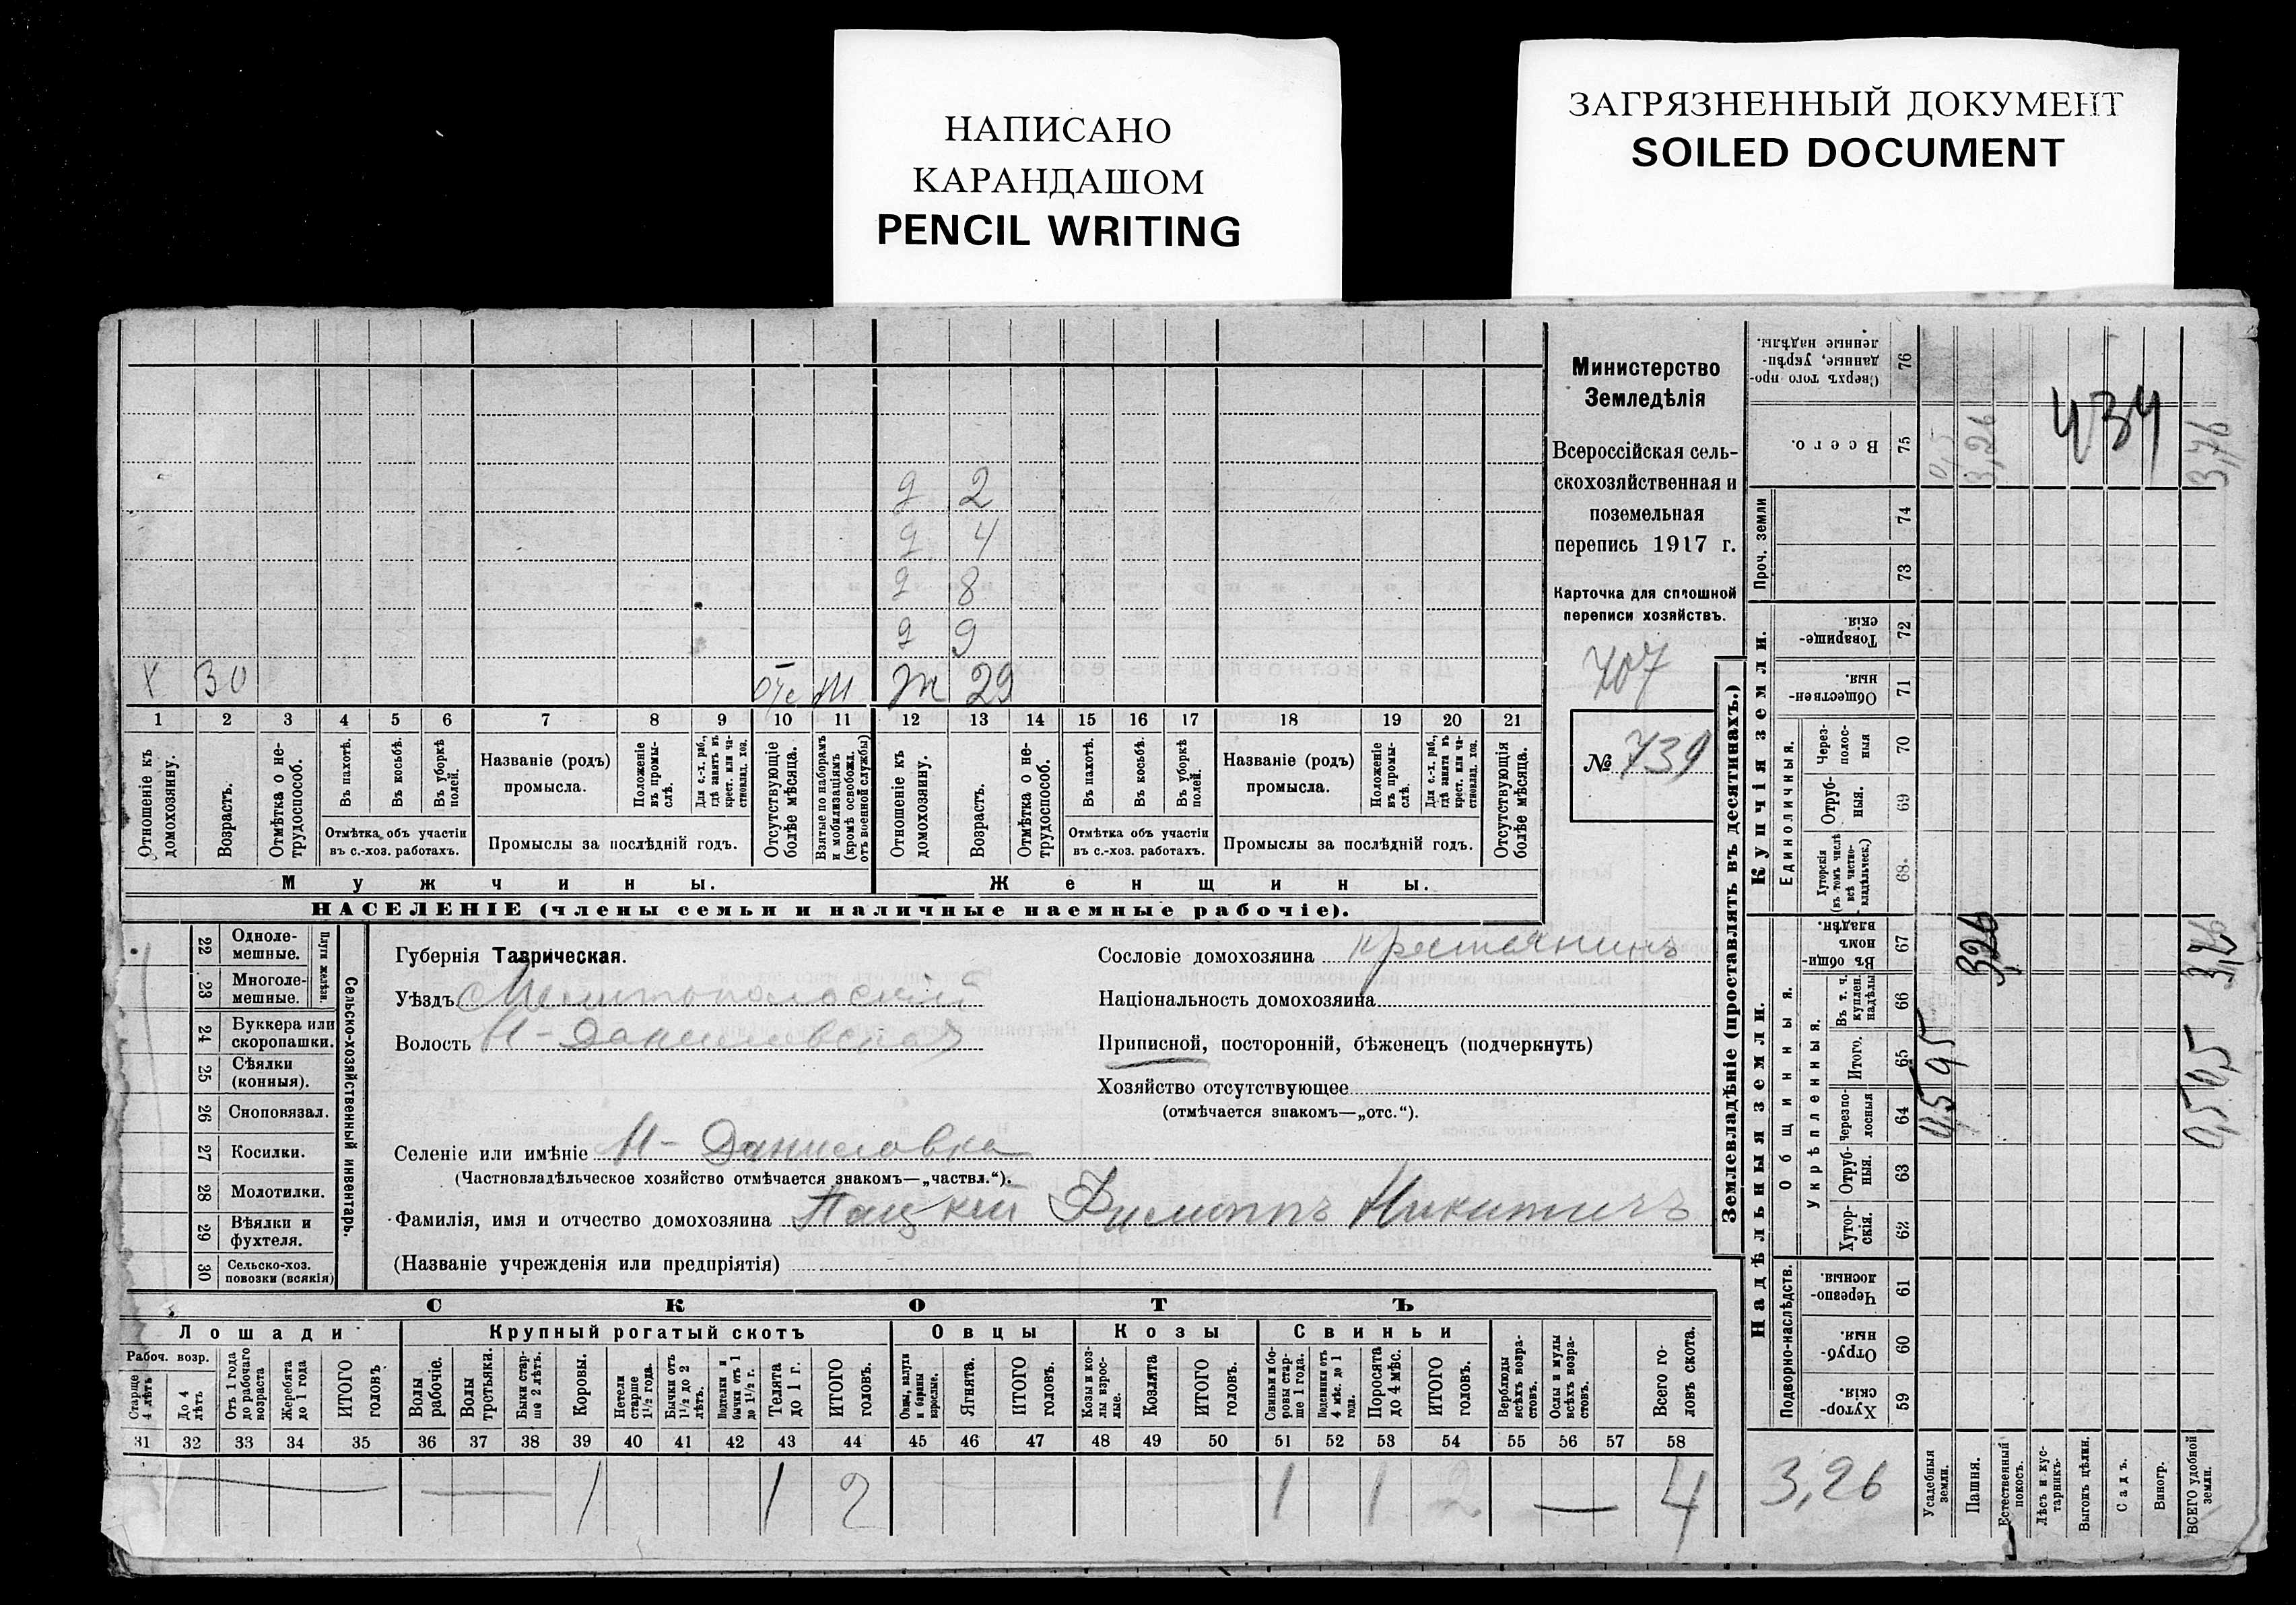 НАПИСАНО
КАРАНДАШОМ
PENCIL WRITING
ЗАГРЯЗНЕННЫЙ ДОКУМЕНТ
SOILED DOCUMENT
Министерство
Земледѣлія
Всероссійская сель-
скохозяйственная и
поземельная
перепись 1917 г.
Карточка для сплошной
переписи хозяйствъ.
707
№ 739
д 2
д 4
д 8
д 9
х 30 отс м ж 29
1 2 3 4 5 6 7 8 9 10 11 12 13 14 15 16 17 18 19 20 21
Отношеніе къ домохозяину.
Возрастъ.
Отмѣтка о не-трудоспособ.
Въ пахотѣ.
Въ косьбѣ.
Въ уборкѣ полей.
Отмѣтка объ участіи
въ с.-хоз. работахъ.
Названіе (родъ)
промысла.
Положеніе въ промы-слѣ.
Для с.-х. раб., гдѣ занятъ въ крест. или ча-стновлад. хоз.
Промыслы за послѣдній годъ.
Отсутствующіе болѣе мѣсяца.
Взятые по наборамъ и мобилизаціямъ (кромѣ освобожд. отъ военной службы)
Отношеніе къ домохозяину.
Возрастъ.
Отмѣтка о не-трудоспособ.
Въ пахотѣ.
Въ косьбѣ.
Въ уборкѣ полей.
Отмѣтка объ участіи
въ с.-хоз. работахъ.
Названіе (родъ)
промысла.
Положеніе въ промы-слѣ.
Для с.-х. раб., гдѣ занята въ крест. или ча-стновлад. хоз.
Промыслы за послѣдній годъ.
Отсутствующія болѣе мѣсяца.
Мужчины.
Женщины.
НАСЕЛЕНІЕ (члены семьи и наличные наемные рабочіе).
22 Одноле-мешные.
23 Многоле-мешные.
Плуги желѣзн.
24 Буккера или скоропашки.
25 Сѣялки (конныя).
26 Сноповязал.
27 Косилки.
28 Молотилки.
29 Вѣялки и фухтеля.
30 Сельско-хоз. повозки (всякія)
Сельско-хозяйственный инвентарь.
Губернія Таврическая.
Уѣздъ Мелитопольскій
Волость Н-Даниловская
Сословіе домохозяина крестьянинъ
Національность домохозяина
Приписной, посторонній, бѣженецъ (подчеркнуть)
Хозяйство отсутствующее
(отмѣчается знакомъ—„отс.“).
Селеніе или имѣніе Н-Даниловка
(Частновладѣльческое хозяйство отмѣчается знакомъ—„частвл.“).
Фамилія, имя и отчество домохозяина Пацкій Филиппъ Никитичъ
(Названіе учрежденія или предпріятія)
СКОТЪ
Лошади
Крупный рогатый скотъ
Овцы
Козы
Свиньи
Рабоч. возр.
Старше 4 лѣтъ
До 4 лѣтъ
Отъ 1 года до рабочаго возраста
Жеребята до 1 года
ИТОГО головъ
Волы рабочіе.
Волы третьяки.
Быки стар-ше 2 лѣтъ.
Коровы.
Нетели старше 1½ года.
Бычки отъ 1½ до 2 лѣтъ.
Подтелки и бычки отъ 1 до 1½ г.
Телята до 1 г.
ИТОГО головъ.
Овцы, валухи и бараны взрослые.
Ягнята.
ИТОГО головъ.
Козы и коз-лы взрос-лые.
Козлята
ИТОГО головъ.
Свиньи и бо-ровы стар-ше 1 года.
Подсвинки отъ 4 мѣс. до 1 года.
Поросята до 4 мѣс.
ИТОГО головъ.
Верблюды всѣхъ возра-стовъ.
Ослы и мулы всѣхъ возра-стовъ.
Всего го-ловъ скота.
31 32 33 34 35 36 37 38 39 40 41 42 43 44 45 46 47 48 49 50 51 52 53 54 55 56 57 58
1 1 2 1 1 2 — 4
Землевладѣніе (проставлять въ десятинахъ.)
Надѣльныя земли.
Купчія земли.
Подворно-наслѣдств.
Общинныя.
Укрѣпленныя.
Единоличныя.
Проч. земли
Сверхъ того про-данные, укрѣп-ленные надѣлы. 76
Всего. 75
74
73
Товарище-скія. 72
Обществен-ныя. 71
Через-полос-ныя 70
Отруб-ныя. 69
Хуторскія (въ томъ числѣ всѣ частно-владѣльческ.) 68
Въ общин-номъ владѣн. 67
Въ т. ч. куплен. надѣлы 66
Итого. 65
Черезпо-лосныя 64
Отруб-ныя. 63
Хутор-скія. 62
Черезпо-лосныя. 61
Отруб-ныя. 60
Хутор-скія. 59
Усадебныя земли.
Пашня.
Естественный покосъ.
Лѣсъ и кус-тарникъ.
Выгонъ цѣлин.
Садъ.
Виногр.
ВСЕГО удобной земли.
434
0,5
3,26
3,76
3,26
3,26
0,5 0,5
0,5 0,5
3,26